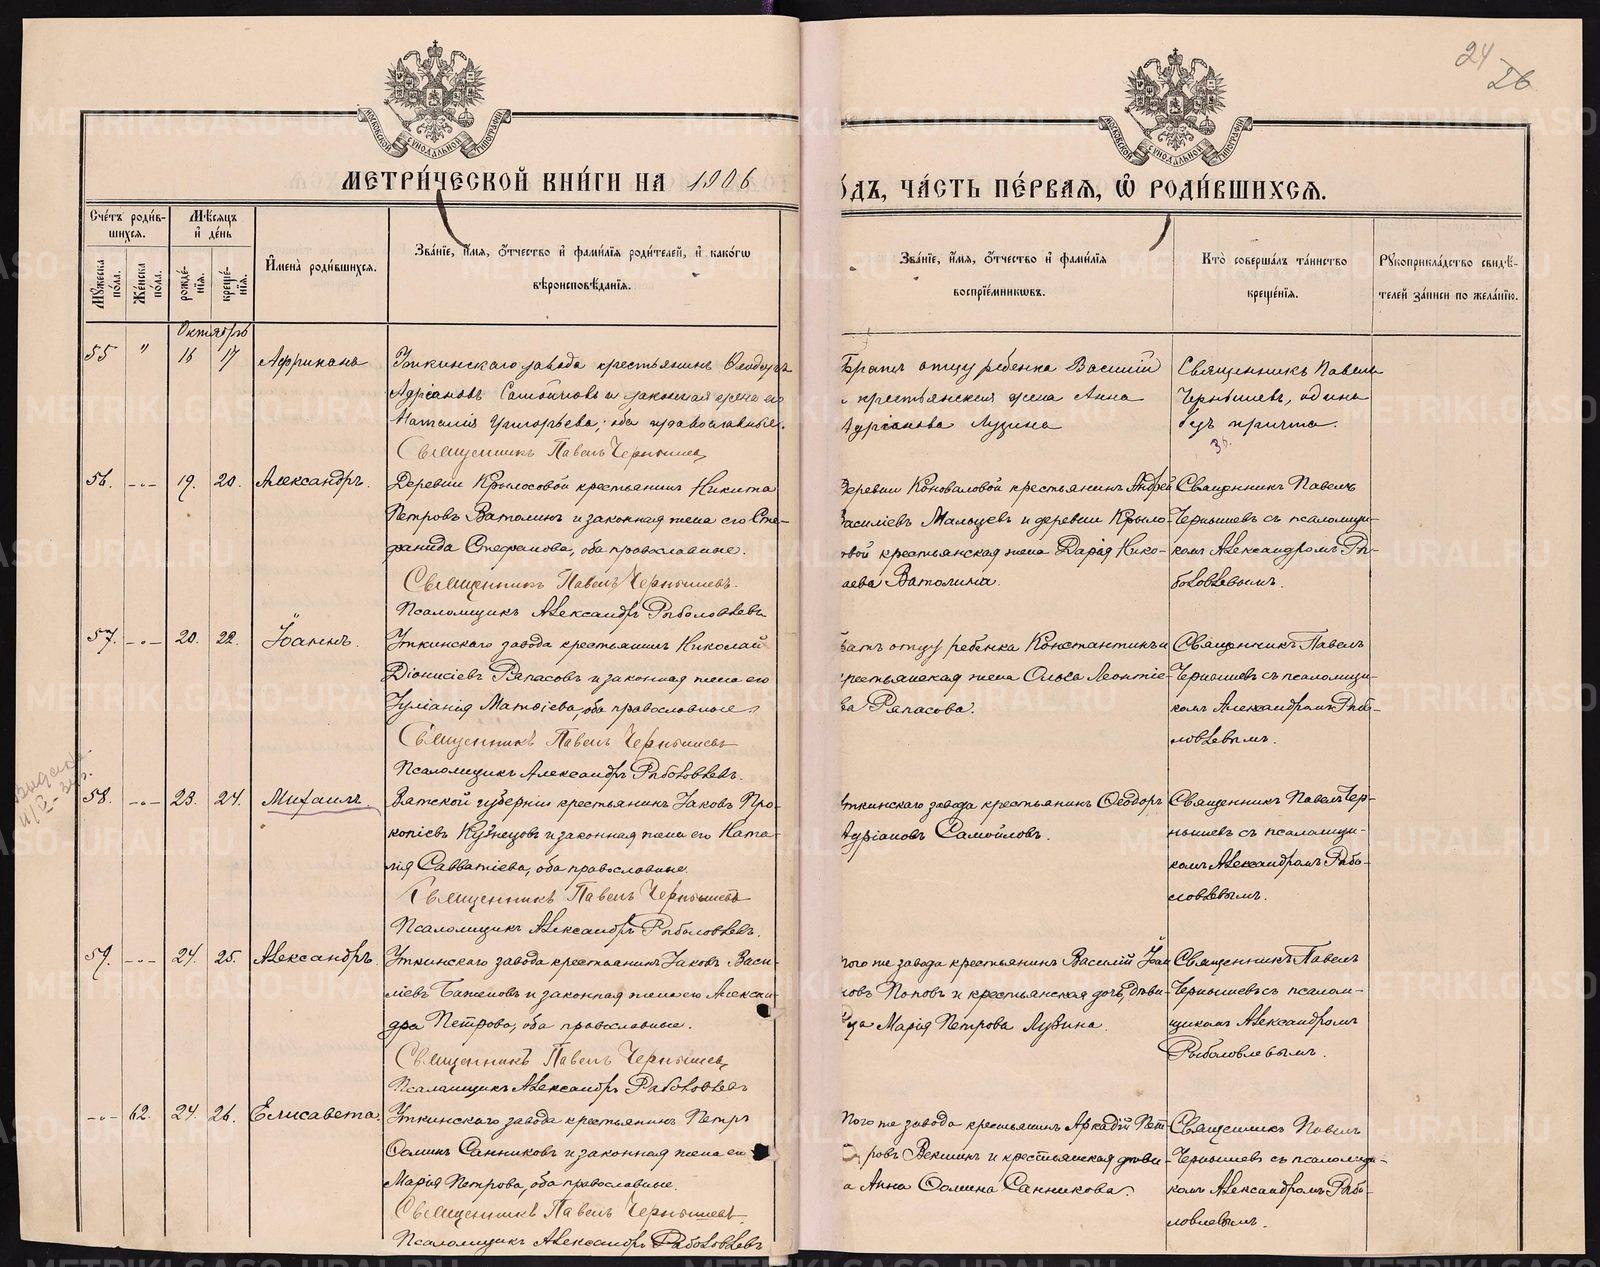 24
26
МОСКОВСКОЙ СѴНОДАЛЬНОЙ ТИПОГРАФІИ
МОСКОВСКОЙ СѴНОДАЛЬНОЙ ТИПОГРАФІИ
МЕТРИ́ЧЕСКОЙ КНИ́ГИ НА 1906
О́ДЪ, ЧА́СТЬ ПЕ́РВАЯ, Ѡ҆ РОДИ́ВШИХСЯ.
Сче́тъ роди́в-
шихся.
Мѣ́сяцъ
и҆ де́нь
Мꙋ́жеска по́ла.
Же́нска по́ла.
рожде́-
нїя.
креще́-
нїя.
И҆мена̀ роди́вшихся.
Зва́нїе, и҆́мя, ѻ҆́тчество и҆ фами́лїя роди́телей, и҆ како́гѡ
вѣроисповѣ́данїя.
Зва́нїе, и҆́мя, ѻ҆́тчество и҆ фами́лїя
воспрїе́мникѡвъ.
Кто̀ соверша́лъ та́инство
креще́нїя.
Рꙋкоприкла́дство свидѣ́-
телей за́писи по жела́нїю.
Октябрь
55 " 16 17 Африканъ
Уткинскаго завода крестьянинъ Ѳеодоръ
Адріановъ Самойловъ и законная жена его
Наталія Григорьева, оба православные.
Священникъ Павелъ Чернышевъ
Братъ отцу ребенка Василій
и крестьянская жена Анна
Адріанова Лузина
Священникъ Павелъ
Чернышевъ, одинъ
безъ причта.
56. -"- 19. 20. Александръ.
Деревни Крылосовой крестьянинъ Никита
Петровъ Ватолинъ и законная жена его Сте-
фанида Стефанова, оба православные.
Священникъ Павелъ Чернышевъ.
Псаломщикъ Александръ Рыболовлевъ
Деревни Коноваловой крестьянинъ Андрей
Василіевъ Мальцевъ и деревни Крыло-
овой крестьянская жена Дарія Нико-
лаева Ватолина.
Священникъ Павелъ
Чернышевъ съ псаломщи-
комъ Александромъ Ры-
боловлевымъ.
57. -"- 20. 22. Іоаннъ.
Уткинскаго завода крестьянинъ Николай
Діонисіевъ Ряпасовъ и законная жена его
Іуліанія Матѳіева, оба православные.
Священникъ Павелъ Чернышевъ
Псаломщикъ Александръ Рыболовлевъ.
Братъ отцу ребенка Константинъ и
крестьянская жена Ольга Леонтіе-
ва Ряпасова.
Священникъ Павелъ
Чернышевъ съ псаломщи-
комъ Александромъ Рыбо-
ловлевымъ.
58. -"- 23. 24. Михаилъ
Вятской губерніи крестьянинъ Іаковъ Про-
копіевъ Кузнецовъ и законная жена его Ната-
лія Савватіева, оба православные.
Священникъ Павелъ Чернышевъ
Псаломщикъ Александръ Рыболовлевъ.
Уткинскаго завода крестьянинъ Ѳеодоръ
Адріановъ Самойловъ.
Священникъ Павелъ Чер-
нышевъ съ псаломщи-
комъ Александромъ Рыбо-
ловлевымъ.
59. -"- 24. 25. Александръ.
Уткинскаго завода крестьянинъ Іаковъ Васи-
ліевъ Баженовъ и законная жена его Алексан-
дра Петрова, оба православные.
Священникъ Павелъ Чернышевъ
Псаломщикъ Александръ Рыболовлевъ
Того же завода крестьянинъ Василій Іоан-
новъ Поповъ и крестьянская дочь, дѣви-
ца Марія Петрова Лузина.
Священникъ Павелъ
Чернышевъ съ псалом-
щикомъ Александромъ
Рыболовлевымъ.
-"- 62. 24. 26. Елисавета
Уткинскаго завода крестьянинъ Петръ
Ѳоминъ Санниковъ и законная жена его
Марія Петрова, оба православные.
Священникъ Павелъ Чернышевъ.
Псаломщикъ Александръ Рыболовлевъ
Того же завода крестьянинъ Аркадій Пет-
ровъ Векшинъ и крестьянская дѣви-
ца Анна Ѳомина Санникова.
Священникъ Павелъ
Чернышевъ съ псаломщи-
комъ Александромъ Рыбо-
ловлевымъ.
METRIKI.GASO-URAL.RU